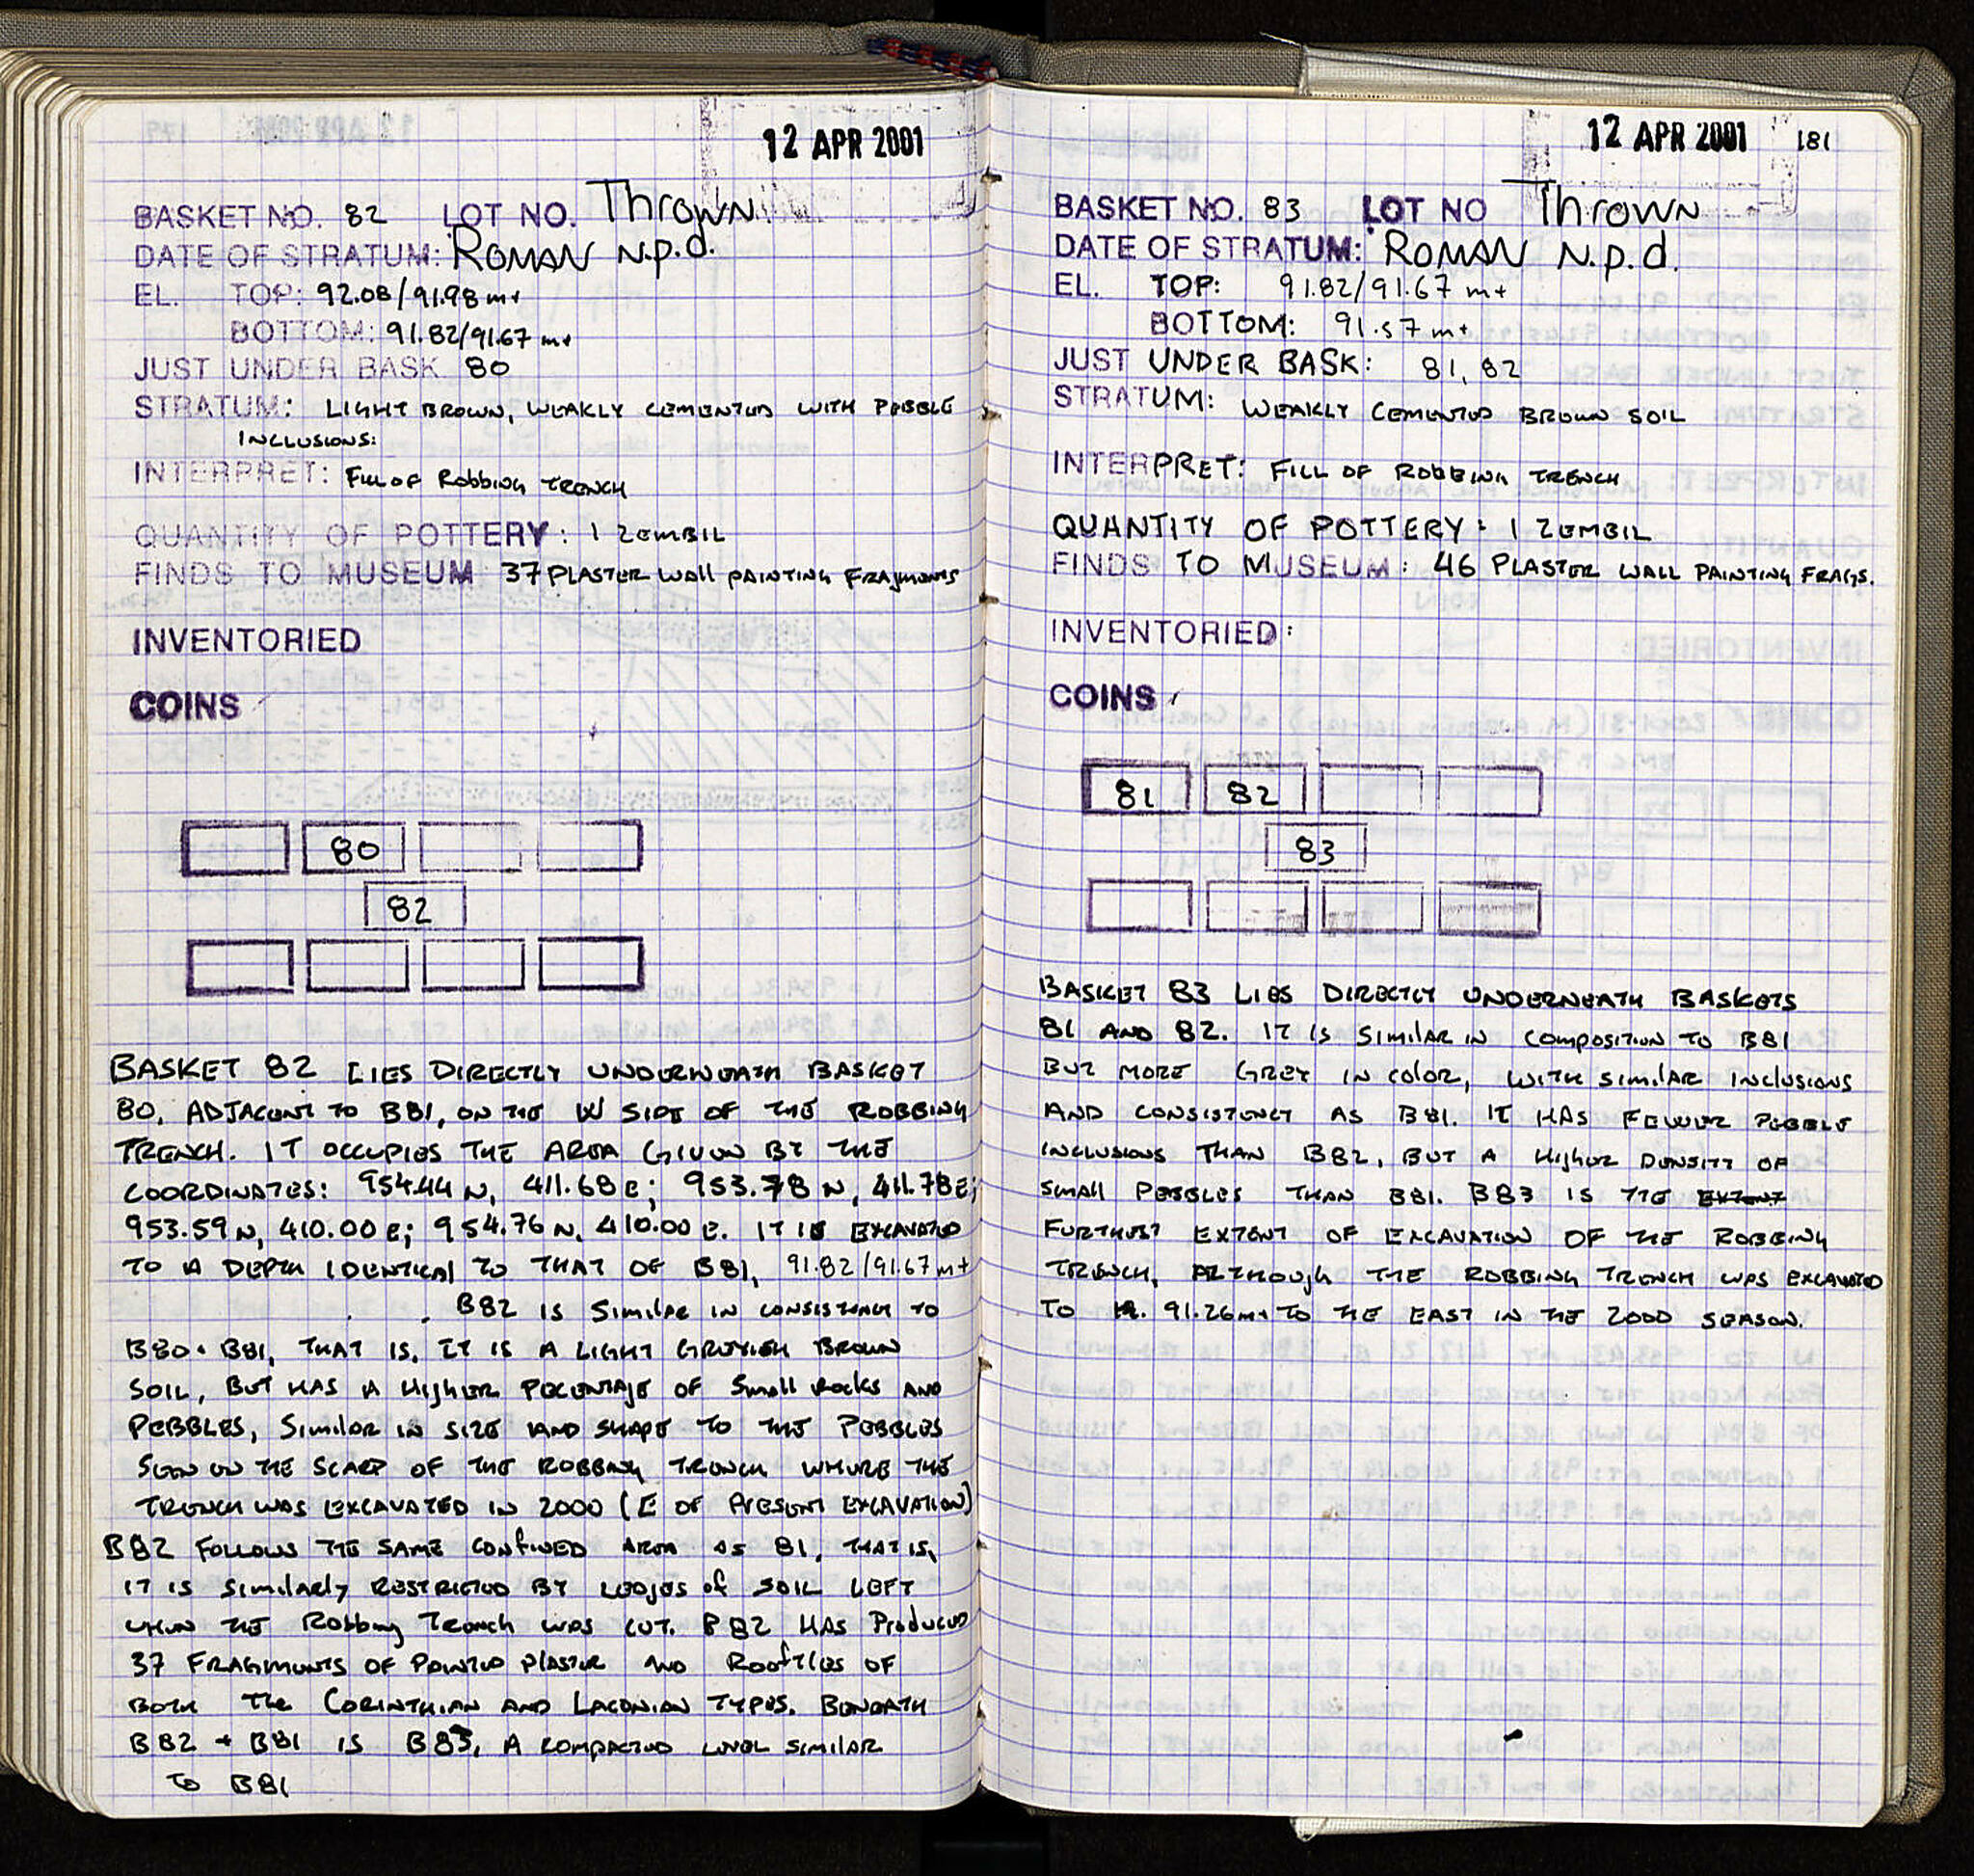 12 APR 2001
BASKET NO. 82 LOT NO. Thrown
DATE OF STRATUM: ROMAN N.p.d.
EL. TOP: 92.08/91.98 m+
BOTTOM: 91.82/91.67 m+
JUST UNDER BASK 80
STRATUM: LIGHT BROWN, WEAKLY CEMENTED WITH PEBBLE
INCLUSIONS:
INTERPRET: FILL OF Robbing TRENCH
QUANTITY OF POTTERY: 1 ZEMBIL
FINDS TO MUSEUM 37 PLASTER WALL PAINTING FRAGMENTS
INVENTORIED
COINS
80
82
BASKET 82 LIES DIRECTLY UNDERNEATH BASKET
80, ADJACENT TO B81, ON THE W SIDE OF THE ROBBING
TRENCH. IT OCCUPIES THE AREA GIVEN BY THE
COORDINATES: 954.44 N, 411.68 E; 953.78 N, 411.78 E;
953.59 N, 410.00 E; 954.76 N, 410.00 E. IT IS EXCAVATED
TO A DEPTH IDENTICAL TO THAT OF B81, 91.82/91.67 m+
B82 IS SIMILAR IN CONSISTENCY TO
B80 + B81, THAT IS, IT IS A LIGHT GREYISH BROWN
SOIL, BUT HAS A HIGHER PECENTAGE OF SMALL ROCKS AND
PEBBLES, SIMILAR IN SIZE AND SHAPE TO THE PEBBLES
SEEN ON THE SCARP OF THE ROBBING TRENCH WHERE THE
TRENCH WAS EXCAVATED IN 2000 (E OF PRESENT EXCAVATION)
B82 FOLLOWS THE SAME CONFINED AREA AS 81, THAT IS,
IT IS SIMILARLY RESTRICTED BY LEDGES OF SOIL LEFT
WHEN THE Robbing Trench WAS CUT. B82 HAS PRODUCED
37 FRAGMENTS OF PAINTED PLASTER AND ROOFTILES OF
BOTH THE CORINTHIAN AND LACONIAN TYPES. BENEATH
B82 + B81 IS B83, A COMPACTED LEVEL SIMILAR
TO B81
12 APR 2001 181
BASKET NO. 83 LOT NO Thrown
DATE OF STRATUM: ROMAN N.p.d.
EL. TOP: 91.82/91.67 m+
BOTTOM: 91.57 m+
JUST UNDER BASK: 81, 82
STRATUM: WEAKLY CEMENTED BROWN SOIL
INTERPRET: FILL OF ROBBING TRENCH
QUANTITY OF POTTERY: 1 ZEMBIL
FINDS TO MUSEUM: 46 PLASTER WALL PAINTING FRAGS.
INVENTORIED:
COINS
81 82
83
BASKET 83 LIES DIRECTLY UNDERNEATH BASKETS
81 AND 82. IT IS SIMILAR IN COMPOSITION TO B81
BUT MORE GREY IN COLOR, WITH SIMILAR INCLUSIONS
AND CONSISTENCY AS B81. IT HAS FEWER PEBBLE
INCLUSIONS THAN B82, BUT A HIGHER DENSITY OF
SMALL PEBBLES THAN B81. B83 IS THE EXTENT
FURTHEST EXTENT OF EXCAVATION OF THE ROBBING
TRENCH, ALTHOUGH THE ROBBING TRENCH WAS EXCAVATED
TO 91.26m+ TO THE EAST IN THE 2000 SEASON.